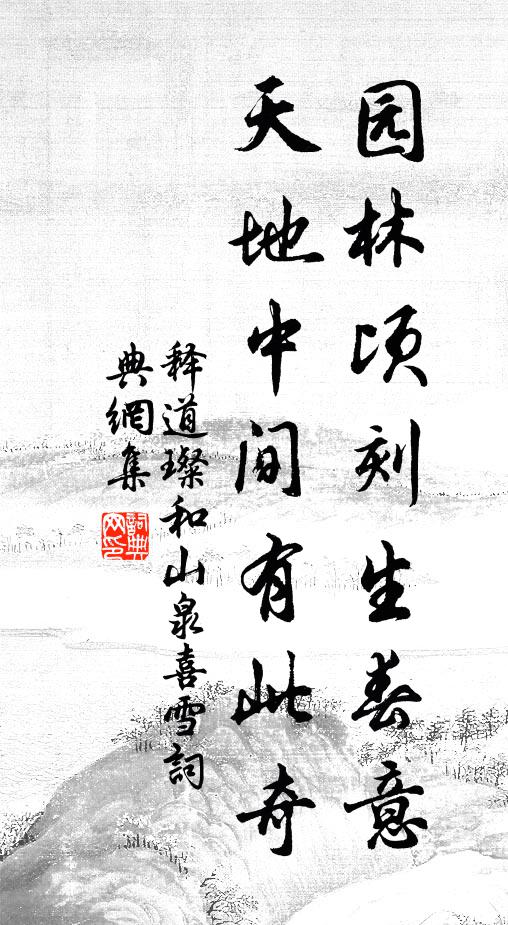 园林顷刻生春意
天地中间有此奇
释道璨和山泉喜雪詞
典網集
詞典
网印